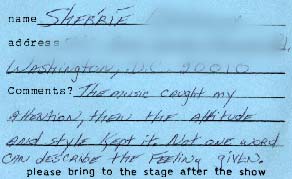 name SHERRIE
address
Washington, D.C. 20010
Comments? The music caught my
attention, then the attitude
and style kept it. Not one word
CAN describe the Feeling given.
please bring to the stage after the show